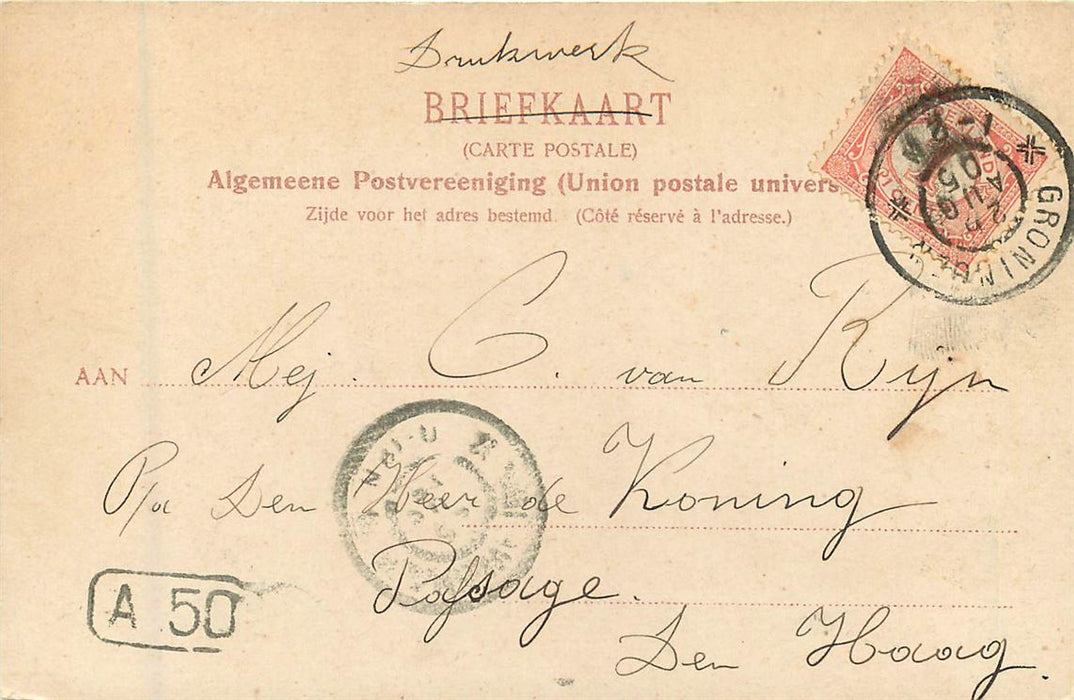 Drukwerk
BRIEFKAART
(CARTE POSTALE)
Algemeene Postvereeniging (Union postale univers
Zijde voor het adres bestemd. (Côté réservé à l'adresse.)
GRONINGEN
AUG
05
AAN Mej. C. van Ryn
P/a Den Heer de Koning
Passage.
Den Haag.
A 50